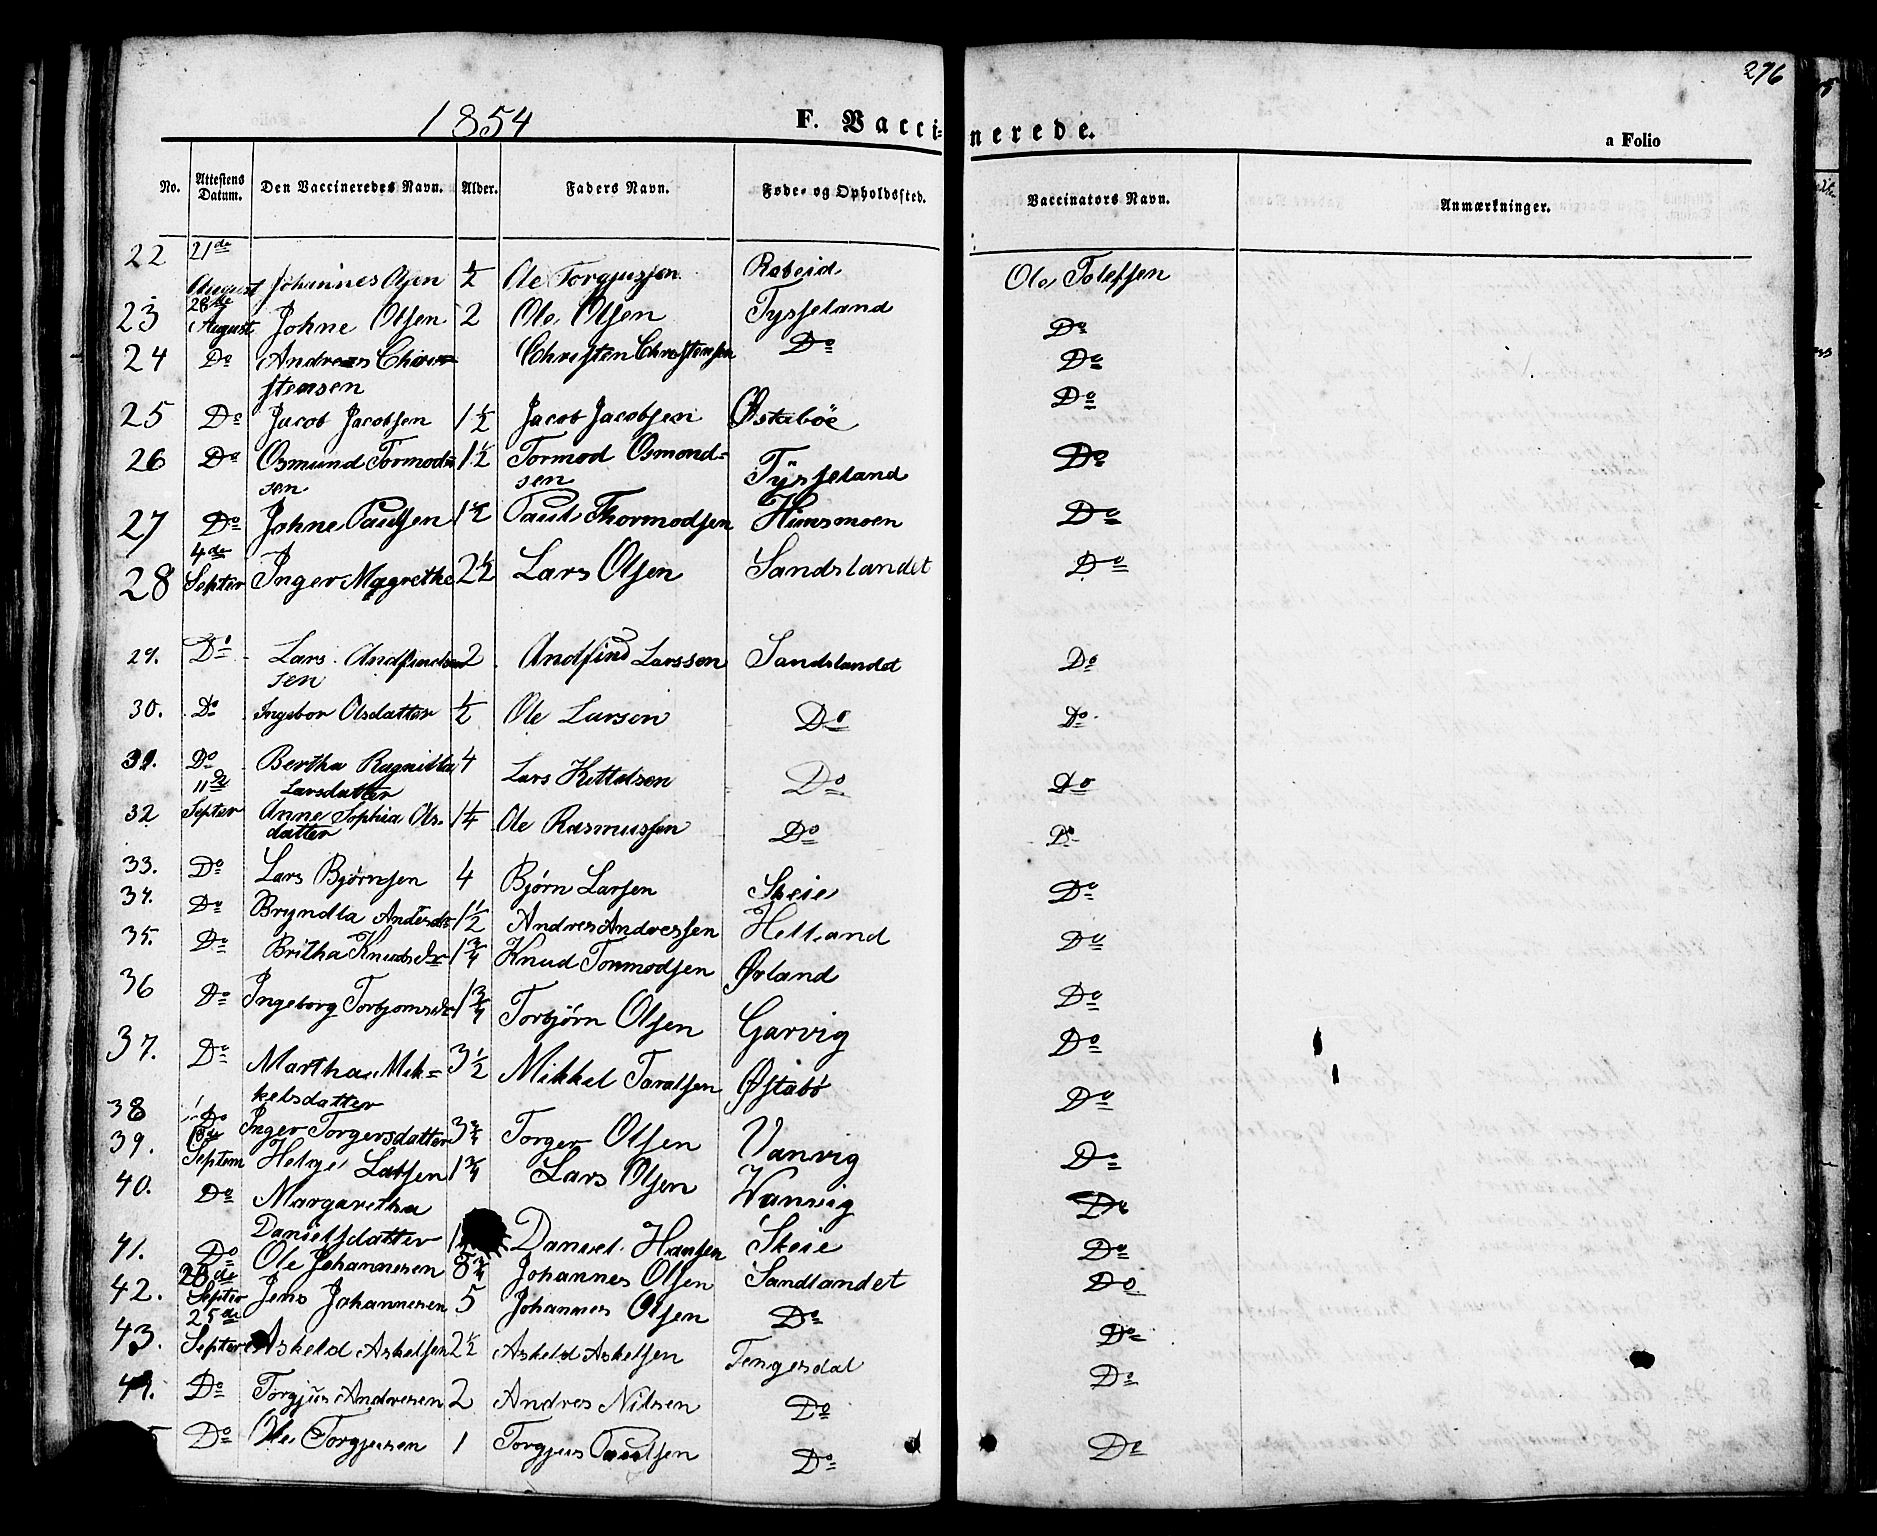 276
1854 F. Vaccinerede. a Folio
No. Attestens Datum. Den Vaccineredes Navn. Alder. Faders Navn. Føde- og Opholdssted. Vaccinators Navn. Anmærkninger.
22 21de August Johannes Olsen ½ Ole Torgjussen Ole Tolefsen
23 28de August Johne Olsen 2 Ole Olsen Tysseland Do
24 Do Andreas Christensen Christen Christensen Do Do
25 Do Jacob Jacobsen 1½ Jacob Jacobsen Østabøe Do
26 Do Osmund Tormodsen 1½ Tormod Osmondsen Tysseland Do
27 Do Johne Paulsen 1½ Paul Thormodsen Himsmoen Do
28 4de Septer Inger Magrethe 2½ Lars Olsen Sandslandet Do
29. Do Lars Andfindsen 2 Andfind Larsson Sandslandet Do
30. Do Ingebor Olsdatter ½ Ole Larsen Do Do
31. Do Bertha Ragnilla Larsdatter 4 Lars Kittelsen Do Do
32 11de Septer Anne Sophia Olsdatter 1¼ Ole Rasmussen Do Do
33. Do Lars Bjørnsen 4 Bjørn Larsen Steie Do
34. Do Bryndla Andersdr 1½ Andres Andressen Helland Do
35. Do Britha Knudsdr 1¾ Knud Tormodsen Ørland Do
36 Do Ingeborg Torbjornsdr 1¾ Torbjørn Olsen Garvig Do
37. Do Martha Mikkelsdatter 3½ Mikkel Taralsen Østabø Do
38 Do Inger Torgersdatter 3¾ Torger Olsen Vanvig Do
39. Septem Helge Larsen 1¾ Lars Olsen Wanvig Do
40. Do Margaretha Danielsdatter Daniel Hansen Steie Do
41. Do Ole Johannesen 8¾ Johannes Olsen Sandlandet Do
42. 20de Septer Jens Johannesen 5 Johannes Olsen Do Do
43. 25de Septer Askeld Askelsen 2½ Askeld Askelsen Tengesdal Do
44. Do Torgjus Andresen 2 Andres Nilsen Do Do
Do Ole Torgjusen 1 Torgjus Paulsen Do Do